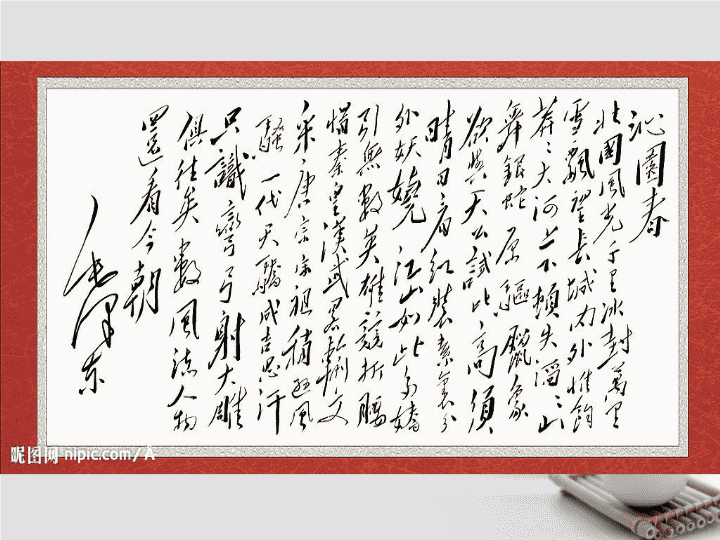 沁園春
北國風光千里冰封萬里
雪飄望長城內外惟餘
莽〻大河上下頓失滔〻山
舞銀蛇原驅臘象
欲與天公試比高須
晴日看紅裝素裹分
外妖嬈江山如此多嬌
引無數英雄競折腰
惜秦皇漢武略輸文
采唐宗宋祖稍遜風
騷一代天驕成吉思汗
只識彎弓射大雕
俱往矣數風流人物
還看今朝
毛澤東
昵图网 nipic.com/A